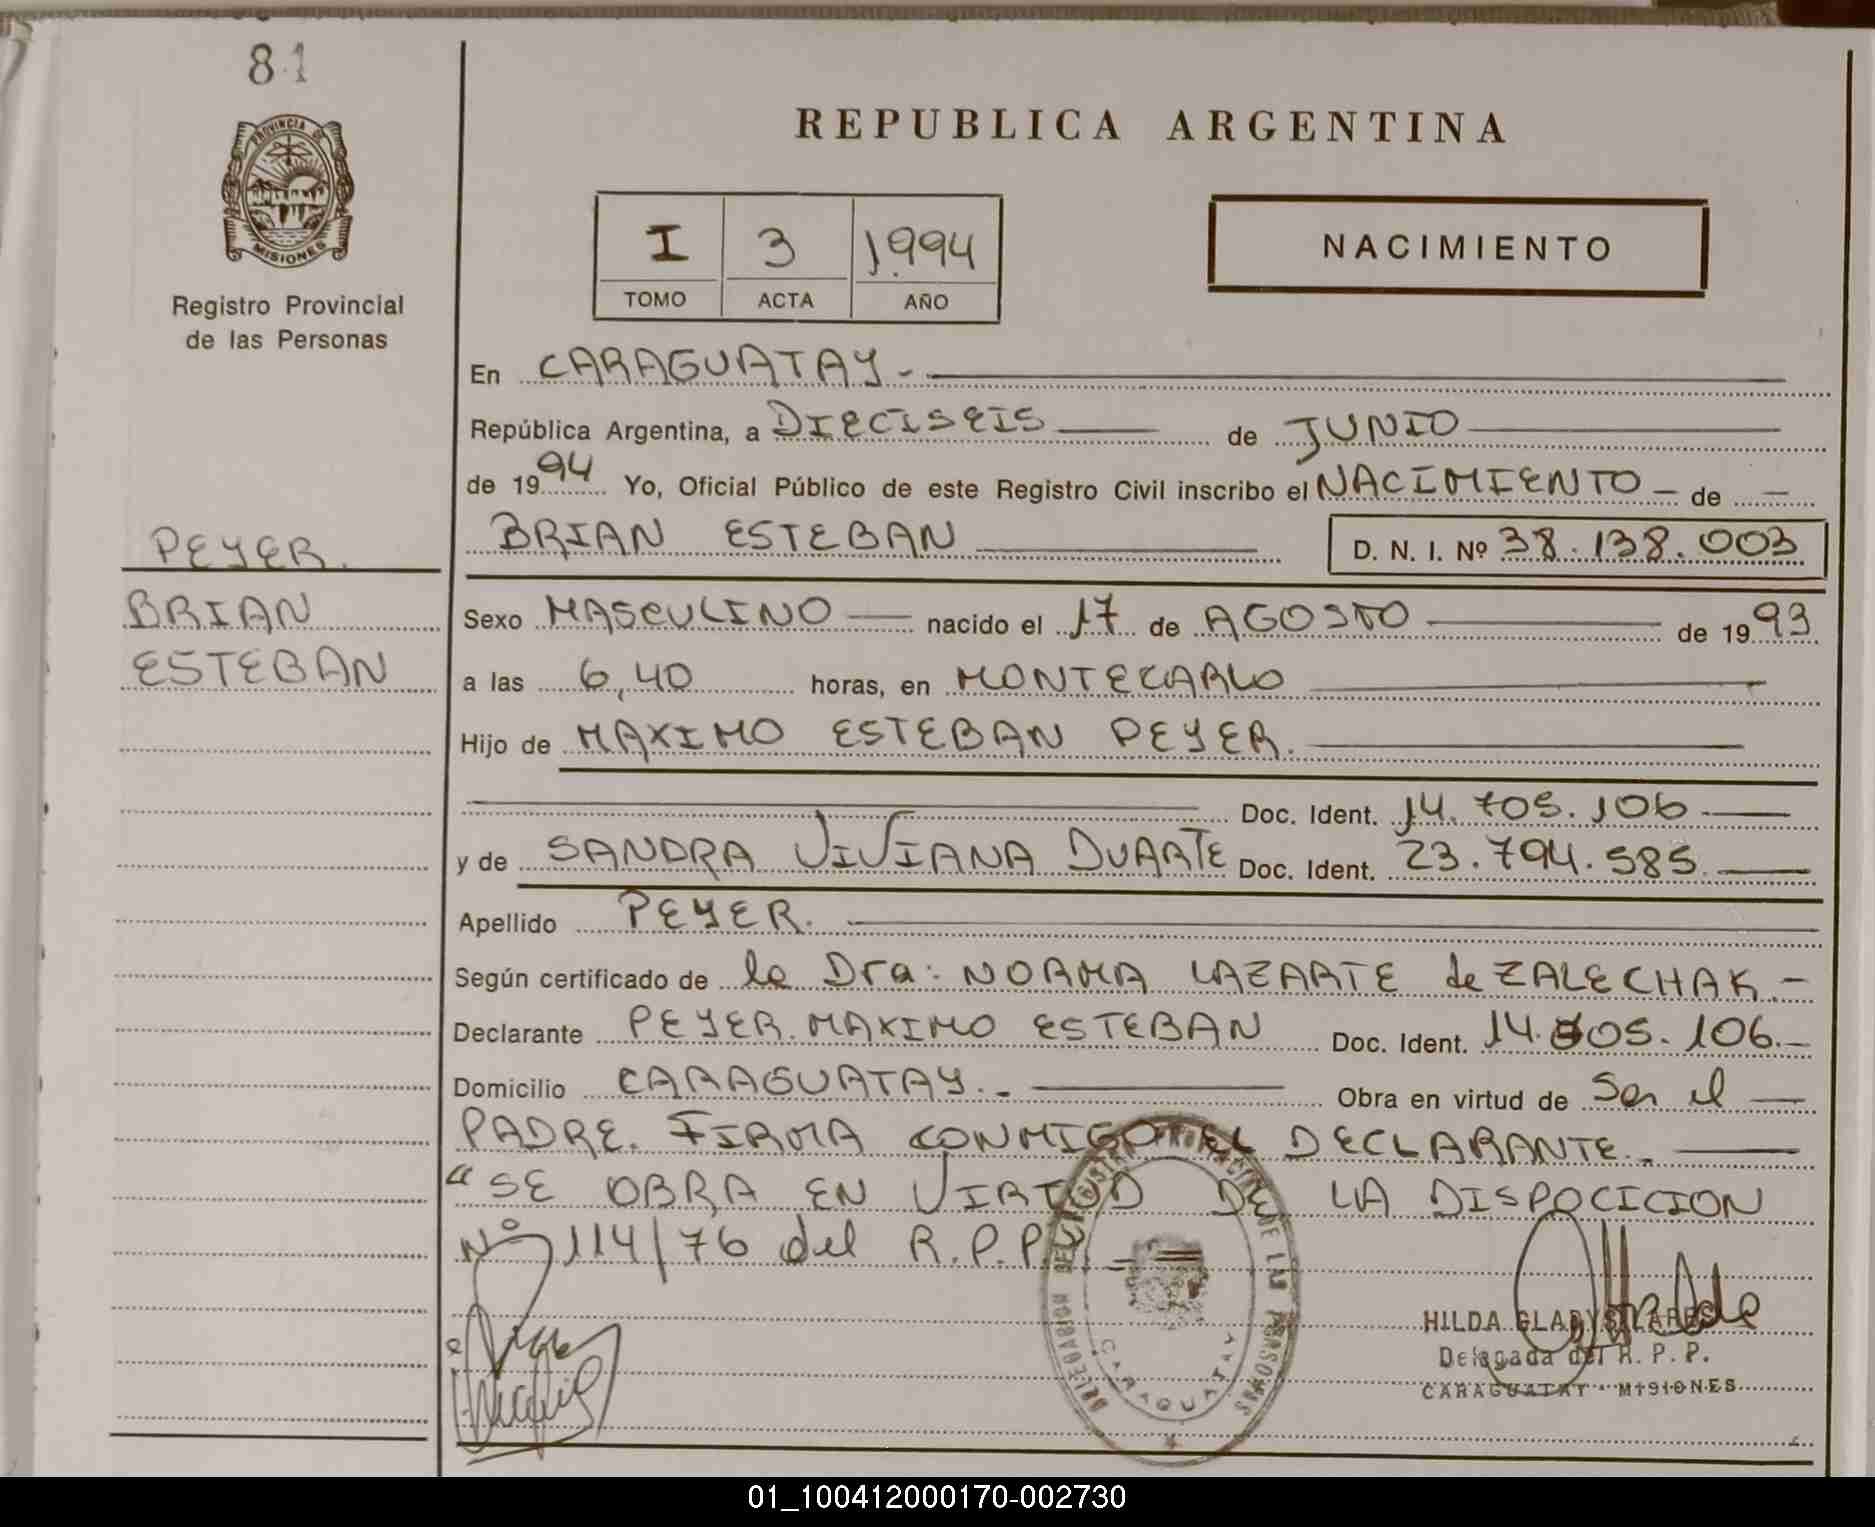 81
PROVINCIA DE
MISIONES
Registro Provincial
de las Personas
PEYER.
BRIAN
ESTEBAN
REPUBLICA ARGENTINA
I 3 1994
TOMO ACTA AÑO
NACIMIENTO
En CARAGUATAY -
República Argentina, a DIECISEIS de JUNIO
de 1994 Yo, Oficial Público de este Registro Civil inscribo el NACIMIENTO - de -
BRIAN ESTEBAN D. N. I. Nº 38.138.003
Sexo MASCULINO nacido el 17 de AGOSTO de 1993
a las 6,40 horas, en MONTECARLO
Hijo de MAXIMO ESTEBAN PEYER.
Doc. Ident. 14.705.106
y de SANDRA VIVIANA DUARTE Doc. Ident. 23.794.585
Apellido PEYER.
Según certificado de la Dra: NORMA LAZARTE de ZALECHAK.-
Declarante PEYER. MAXIMO ESTEBAN Doc. Ident. 14.705.106.-
Domicilio CARAGUATAY.- Obra en virtud de ser el
PADRE. FIRMA CONMIGO EL DECLARANTE.-
"SE OBRA EN VIRTUD DE LA DISPOCICION
Nº 114/76 del R.P.P.
DELEGACION DEL REGISTRO PROVINCIAL DE LAS PERSONAS
CARAGUATAY
HILDA GLADYS
Delegada del R. P. P.
CARAGUATAY - MISIONES
01_100412000170-002730